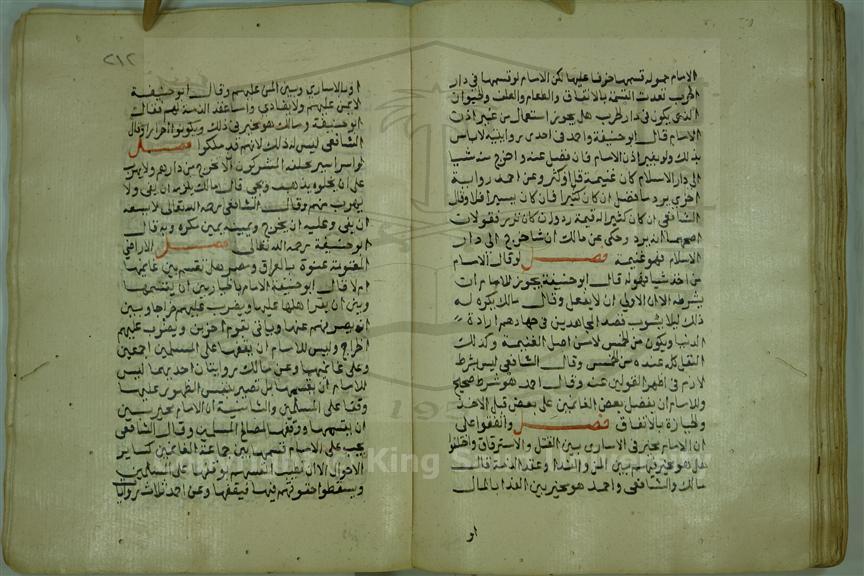 الامام حموله قسمها خوفا عليها لكن الامام لو قسمها في دار
الحرب نفذت القسمة بالاتفاق والطعام والعلف والحيوان
الذي يكون في دار الحرب هل يجوز استعمال من غير اذن
الامام قال ابو حنيفة واحمد في احدى روايتيه لا باس
بذلك ولو بغير اذن الامام فان فضل عنه واخرج منه شيا
الى دار الاسلام كان غنيمة قل او كثر وعن احمد رواية
اخرى يرد ما فضل ان كان كثيرا فان كان يسيرا فلا وقال
الشافعي ان كان كثيرا له قيمة رد وان كان نزر فقولات
اصحهما انه يرد وحكى عن مالك ان ما خرج الى دار
الاسلام فهو غنيمة فصل لو قال الامام
من اخذ شيا فهو له قال ابو حنيفة يجوز للامام ان
يشرطه الا ان الاولى ان لا يفعل وقال مالك يكره له
ذلك ليلا يشوب قصد المجاهدين في جهادهم ارادة
الدنيا ويكون من الخمس لا من اصل الغنيمة وكذلك
النفل كله عنده من الخمس وقال الشافعي ليس بشرط
لازم في اظهر القولين عنه وقال احمد هو شرط صحيح
وللامام ان يفضل بعض الغانمين على بعض قبل الاخذ
والحيازة بالاتفاق فصل واتفقوا على
ان الامام مخير في الاسارى بين القتل والاسترقاق واختلفوا
هل هو مخير فيهم بين المن والفدا وعقد الذمة فقال
مالك والشافعي واحمد هو مخير بين الفدا بالمال
او
٢١٢
او بالاسارى وبين المن عليهم وقال ابو حنيفة
لا يمن عليهم ولا يفادي واما عقد الذمة لهم فقال
ابو حنيفة ومالك هو مخير في ذلك ويكونوا احرارا وقال
الشافعي ليس له ذلك لانهم قد ملكوا فصل
لو اسر اسير يحلفه المشركون الا يخرج من دارهم ولا يهرب
على ان يخلوه يذهب ويجي قال مالك يلزمه ان يفي ولا
يهرب منهم وقال الشافعي رحمه الله تعالى لا يسعه
ان يفي وعليه ان يخرج ويمينه يمين مكره وبه قال
ابو حنيفة رحمه الله تعالى فصل الاراضي
المفتوحة عنوة بالعراق ومصر هل تقسم بين غانميها
ام لا قال ابو حنيفة الامام بالخيار بين ان يقسمها
وبين ان يقر اهلها عليها ويضرب عليهم خراجا وبين
ان يصرفهم عنها وياتي بقوم اخرين ويضرب عليهم
الخراج وليس للامام ان يقفها على المسلمين اجمعين
وعلى غانميها وعن مالك روايتان احديهما ليس
للامام ان يقسمها بل تصير بنفس الظهور عليها
وقفا على المسلمين والثانية ان الامام مخير بين
ان يقسمها ووقفها لمصالح المسلمين وقال الشافعي
يجب على الامام قسمها بين جماعة الغانمين كساير
الاموال الا ان تطيب انفسهم بوقفها على المسلمين
ويسقطوا حقوقهم فيها فيقفها وعن احمد ثلاث روايات
King Saud University